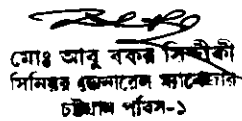 মোঃ আবু বকর সিদ্দীকী
সিনিয়র জেনারেল ম্যানেজার
চট্টগ্রাম পবিস-১